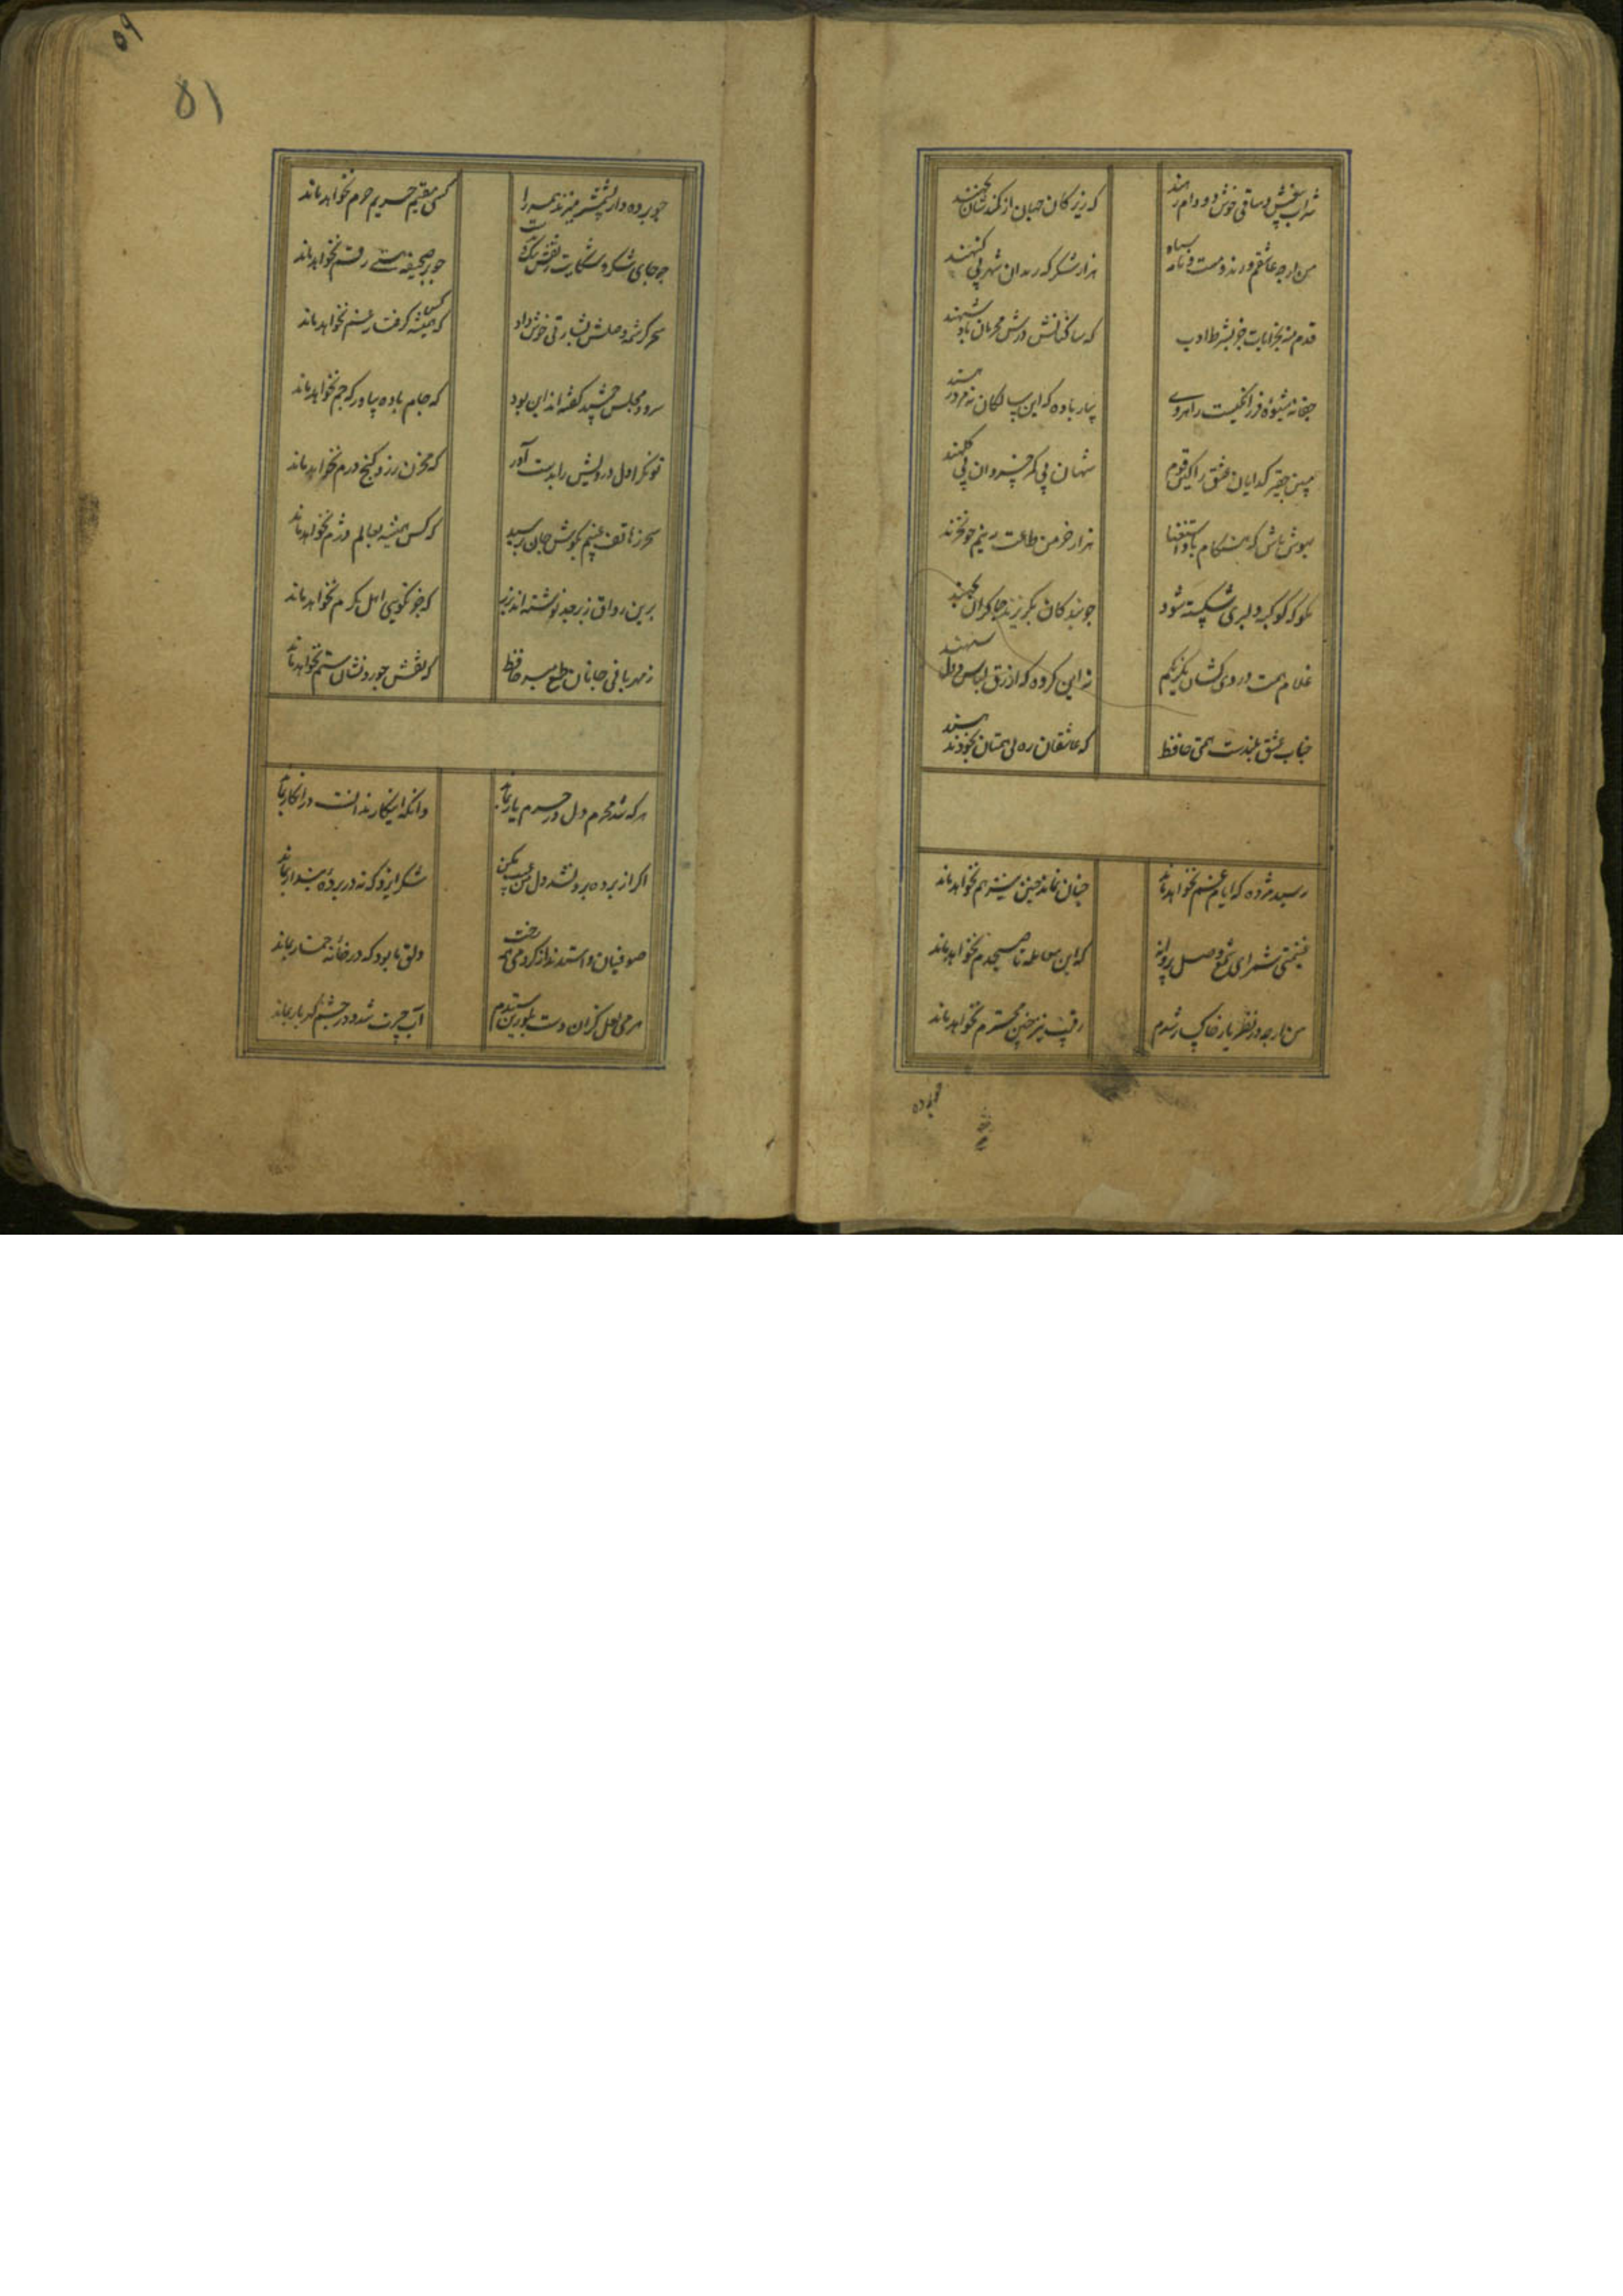 شراب بیغش و ساقی خوش دو دام رهند
که زیرکان جهان از کمندشان نجهند
من ارچه عاشقم و رند و مست و نامه سیاه
هزار شکر که رندان شهر بی گنهند
قدم منه بخرابات جز بشرط ادب
که ساکنانش درش محرمان پادشهند
جفا نه شیوهٔ فرزانگیست راهروی
بیار باده که این سالکان نه مرد رهند
مبین حقیر گدایان عشق را کین قوم
شهان بی کمر و خسروان بی کلهند
بهوش باش که هنگام باد استغنا
هزار خرمن طاعت به نیم جو نخرند
مکن که کوکبهٔ دلبری شکسته شود
چو بندگان بگریزند چاکران بجهند
غلام همت دردی کشان یکرنگم
نه این گروه که ازرق لباس و دل سیهند
جناب عشق بلندست همتی حافظ
که عاشقان ره بی همتان بخود ندهند
رسید مژده که ایام غم نخواهد ماند
چنان نماند چنین نیز هم نخواهد ماند
غنیمتی شمر ای شمع وصل پروانه
که این معامله تا صبحدم نخواهد ماند
من ارچه در نظر یار خاکسار شدم
رقیب نیز چنین محترم نخواهد ماند
چو پرده
۵۹
۵۱
چو پرده دار بشمشیر میزند همه را
کسی مقیم حریم حرم نخواهد ماند
چه جای شکر و شکایت ز نقش نیک و بدست
چو بر صحیفه هستی رقم نخواهد ماند
سحر کرشمه وصلش بشارتی خوش داد
که کس همیشه گرفتار غم نخواهد ماند
سرود مجلس جمشید گفته اند این بود
که جام باده بیاور که جم نخواهد ماند
توانگرا دل درویش را بدست آور
که مخزن زر و گنج درم نخواهد ماند
سحر ز هاتف غیبم بگوش جان رسید
که کس همیشه بعالم دژم نخواهد ماند
برین رواق زبرجد نوشته اند بزر
که جز نکویی اهل کرم نخواهد ماند
ز مهربانی جانان طمع مبر حافظ
که نقش جور و نشان ستم نخواهد ماند
هر که شد محرم دل در حرم یار بماند
وانکه اینکار ندانست در انکار بماند
اگر از پرده برون شد دل من عیب مکن
شکر ایزد که نه در پردهٔ پندار بماند
صوفیان واستدند از گرو می همه رخت
دلق ما بود که در خانهٔ خمار بماند
هر می لعل کزان دست بلورین ستدم
آب حسرت شد و در چشم گهربار بماند